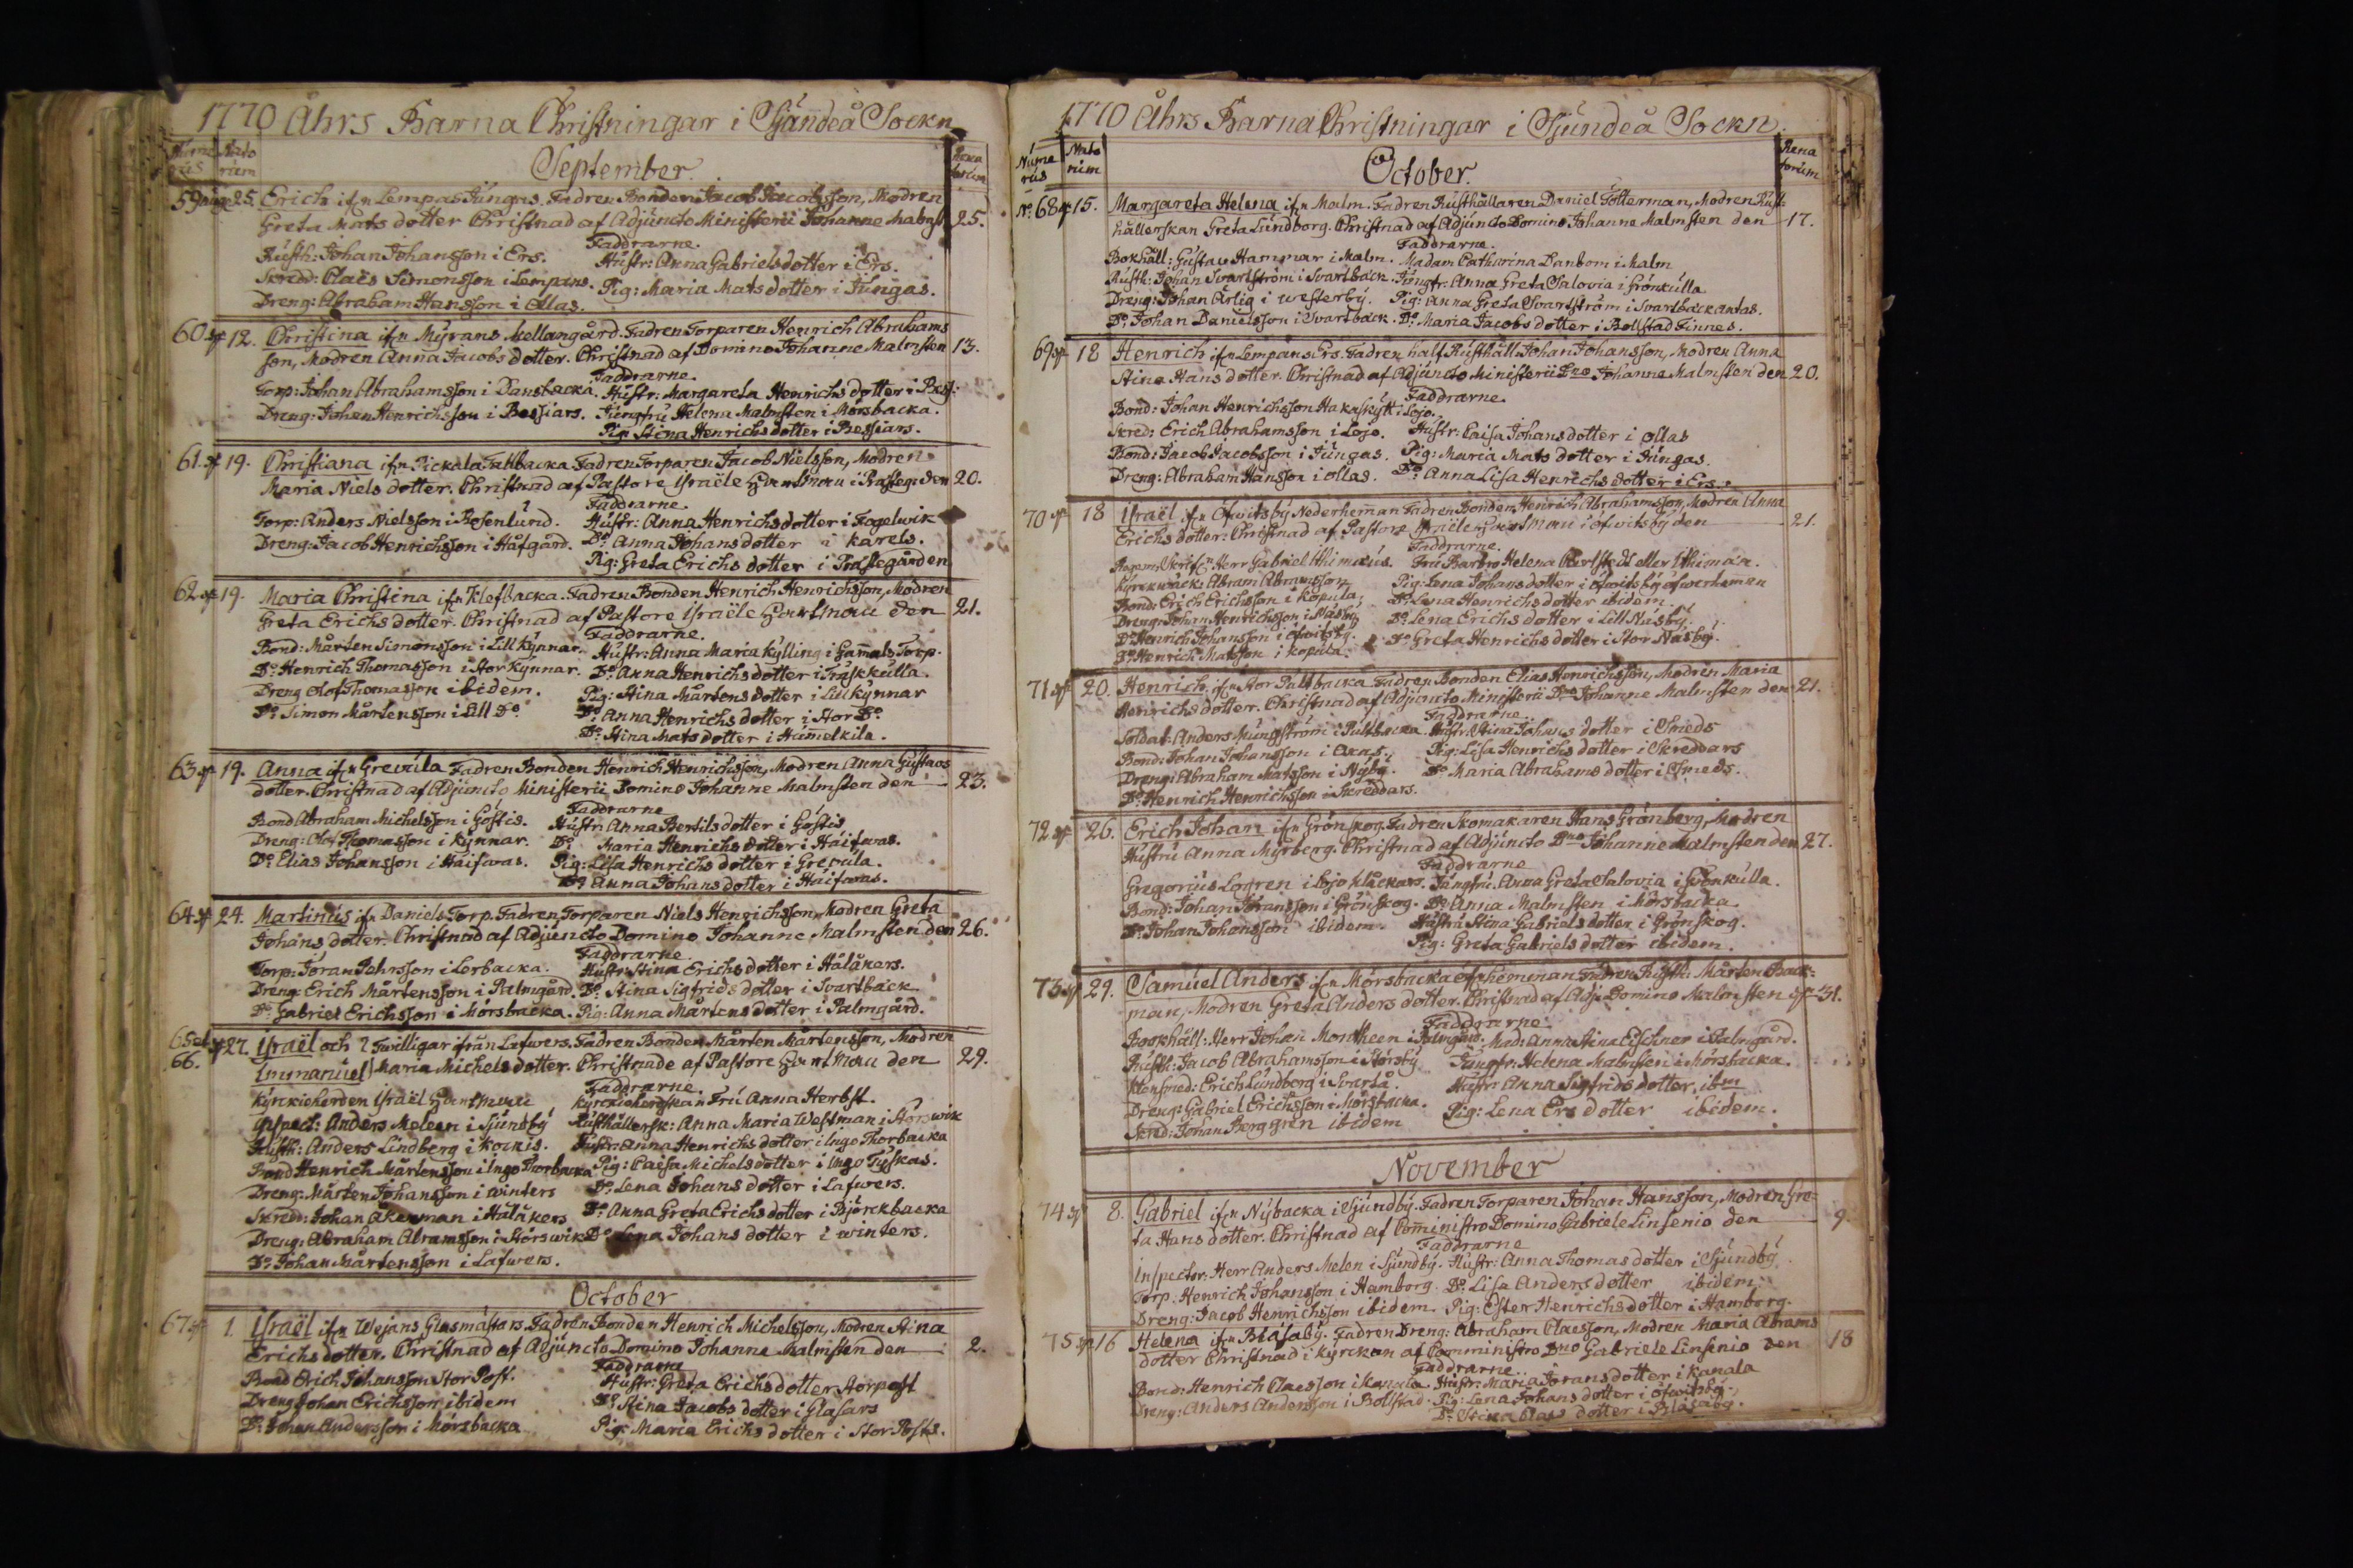 1770 Åhrs Barna Christningar i Sjündeå Sockn
Nume rús Nato rium September. Rena torium
59 Aug. 25. Erich ifrn Lempas Jüngas. Fadren Bonden Jacob Jacobsson, Modren
Greta Mats dotter Christnad af Adjuncto Ministerii Johanne Malmst 25.
Faddrarne.
Rústh: Johan Johansson i Ers. Hústr: Anna Gabrielsdotter i Ers.
Skredd: Claës Simonsson i Lempans. Pig: Maria Matsdotter i Jüngas.
Dreng: Abraham Hansson i Ollas.
60 12. Christina ifrn Mÿrans Mellangård. Fadren Torparen Henrich Abrahams
son, Modren Anna Jacobs dotter. Christnad af Domino Johanne Malmsten 13.
Faddrarne.
Torp: Johan Abrahamsson i Dansbacka. Hústr: Margareta Henrichs dotter i
Dreng: Johan Henrichsson i Bessiars. Jungfrú Helena Malmsten i Mörsbacka.
Pig: Stina Henrichs dotter i Bessiars.
61. 19. Christiana ifrn Pickala Fallbacka. Fadren Torparen Jacob Nielsson, Modren
Maria Niels dotter. Christnad af Pastore Israële i Prästeg: den 20.
Faddrarne.
Torp: Anders Nielsson i Rosenlund. Hústr: Anna Henrichsdotter i Fogelwik
Dreng: Jacob Henrichsson i Håfgård. Do Anna Johans dotter i Karels.
Pig: Greta Erichs dotter i Prästegården
62. 19. Maria Christina ifrn Klefbacka. Fadren Bonden Henrich Henrichsson, Modren
Greta Erichs dotter. Christnad af Pastore Israële den 21.
Faddrarne.
Bond: Mårten Simonsson i Lill Kÿnnar. Hústr: Anna Maria Kÿlling i Gamals Torp.
Do Henrich Thomasson i Stor Kÿnnar. Do Anna Henrichs dotter i Träskkulla.
Dreng Olof Thomasson ibidem. Pig: Stina Mårtens dotter i Lill Kÿnnar
Do Simon Mårtensson i Lill Do Do Anna Henrichs dotter i Stor Do
Do Stina Mats dotter i Humelkila.
63 19. Anna ifrn Grevúla Fadren Bonden Henrich Henrichsson, Modren Anna Gústavs
dotter. Christnad af Adjuncto Ministerii Domino Johanne Malmsten den 23.
Faddrarne
Bond Abraham Michelsson i Göstis. Hústr: Anna Bertils dotter i Göstis
Dreng: Olof Thomasson i Kÿnnar. Do Maria Henrichs dotter i Häifwas.
Do Elias Johansson i Häifwas. Pig: Lisa Henrichs dotter i Grevúla.
Do Anna Johans dotter i Häifwas.
64. 24. Martinús ifrn Daniels Torp. Fadren Torparen Niels Henrichsson, Modren Greta
Johans dotter. Christnad af Adjuncto Domino Johanne Malmsten den 26.
Faddrarne.
Torp: Jöran Pehrsson i Lerbacka. Hústr: Stina Erichs dotter i Hålåkers.
Dreng: Erich Mårtensson i Palmgård. Do Stina Sigfrids dotter i Svartbäck
Do Gabriel Erichsson i Mörsbacka. Pig: Anna Mårtens dotter i Palmgård.
65 et 66. 27. Israël och Immanúel Twillingar ifrån Lafwers. Fadren Bonden Mårten Mårtensson, Modren
Maria Michels dotter. Christnade af Pastore den 29.
Faddrarne.
Kÿrckieherden Israël Kÿrckieherdskan Frú Anna Herbst.
Inspect: Anders Meleen i Sjündbÿ Rústhållersk: Anna Maria Westman i Störswik
Rústh: Anders Lindberg i Kockis. Hústr: Anna Henrichs dotter i Ingo Thorbacka
Bond Henrich Mårtensson i Ingo Thorbacka Pig: Caisa Michels dotter i Ingo Tÿskas.
Dreng: Mårten Johansson i Winters Do Lena Johans dotter i Lafwers.
Skredd: Johan Åkerman i Hålåkers Do Anna Greta Erichs dotter i Björckbacka
Dreng: Abraham Abramsson i Störswik Do Lena Johans dotter i Winters.
Do Johan Mårtensson i Lafwers.
October
67. 1. Israël ifrn Wejans Glasmästars. Fadren Bonden Henrich Michelsson, Modren Stina
Erichs dotter. Christnad af Adjuncto Domino Johanne Malmsten den 2.
Faddrarne
Bond Erich Johansson Stor Post. Hústr: Greta Erichsdotter Storpost
Dreng Johan Erichsson ibidem Do Stina Jacobs dotter i Glasars
Do Johan Andersson i Mörsbacka Pig: Maria Erichs dotter i Stor Posts.
1770 Åhrs Barna Christningar i Sjündeå Sockn.
Núme rús Nato rium October. Rena torium
No 68 15. Margareta Helena ifrn Malm. Fadren Rústhållaren Daniel Tötterman, Modren Rúst-
hållerskan Greta Lúndborg. Christnad af Adjuncto Domino Johanne Malmsten den 17.
Faddrarne.
Bokhåll: Gústav Hammar i Malm. Madam Catharina Danbom i Malm
Rústh: Johan Svartström i Svartbäck. Jungfr: Anna Greta Salovia i Grönkúlla
Dreng: Johan Ärlig i Westerbÿ. Pig: Anna Greta Svartström i Svartbäck
Do Johan Danielsson i Svartbäck. Do Maria Jacobs dotter i Bollstad Finnes.
69 18 Henrich ifrn Lempans Ers. Fadren half Rústhåll: Johan Johansson, Modren Anna
Stina Hans dotter. Christnad af Adjuncto Ministerii Dno Johanne Malmsten den 20.
Faddrarne.
Bond: Johan Henrichsson Hakaskÿtt i Lojo.
Skred: Erich Abrahamsson i Lojo. Hústr: Caisa Johansdotter i Ollas
Bond: Jacob Jacobsson i Jüngas. Pig: Maria Mats dotter i Jüngas.
Dreng: Abraham Hansson i Ollas. Do Anna Lisa Henrichs dotter i Ers.
70 18 Israël ifrn Öfwitsbÿ Nederheman Fadren Bonden Henrich Abrahamsson, Modren Anna
Erichs dotter: Christnad af Pastore Israële i Öfwitsbÿ den 21.
Faddrarne.
Herr Gabriel Frú Barbro Helena
Kÿrckwäck: Abram Abramsson Pig: Lena Johans dotter i Öfwitsbÿ Öfwerheman
Bond: Erich Erichsson i Kopula. Do Lena Henrichs dotter ibidem.
Dreng: Johan Henrichsson i Näsbÿ Do Lena Erichs dotter i Lill Näsbÿ.
Do Henrich Johansson i Öfwitsbÿ. Do Greta Henrichs dotter i Stor Näsbÿ.
Do Henrich Matsson i Kopula.
71 20. Henrich ifrn Stor Pallbacka Fadren Bonden Elias Henrichsson, Modren Maria
Henrichs dotter. Christnad af Adjuncto Ministerii Dno Johanne Malmsten den 21.
Faddrarne.
Soldat: Anders Múngström i Hústr: Stina Johans dotter i Smeds
Bond: Johan Johansson i Pig: Lisa Henrichs dotter i Skreddars
Dreng: Abraham Matsson i Nÿbÿ. Do Maria Abrahams dotter i Smeds.
Do Henrich Henrichsson i Skreddars.
72 26. Erich Johan ifrn Grönskog. Fadren Skomakaren Hans Grönberg, Modren
Hústrú Anna Mÿrberg. Christnad af Adjuncto Dno Johanne Malmsten den 27.
Faddrarne
Gregorius Logren i Lojo klåckars. Jungfrú: Anna Greta Salovia i Grönkúlla.
Bond: Johan Jöransson i Grönskog. Do Anna Malmsten i Mörsbacka
Do Johan Johansson ibidem. Hústrú Stina Gabriels dotter i Grönskog.
Pig: Greta Gabriels dotter ibidem.
73 29. Samúel Anders ifrn Mörsbacka Öfwheminan Fadren Rústh: Mårten Back-
man, Modren Greta Anders dotter. Christnad af Adj: Domino Malmsten 31.
Faddrarne.
Bookhåll: Herr Johan Montheen i Palmgård. Mad: Anna Stina Eischner i Palmgård.
Rústh: Jacob Abrahamsson i Störsbÿ Jungfr: Helena Malmsten i Mörsbacka.
Klensmed: Erich Lúndberg i Svartå. Hústr: Anna Sigfrids dotter ibm
Dreng: Gabriel Erichsson i Mörsbacka. Pig: Lena Ers dotter ibidem.
Skred: Johan Berggren ibidem
November
74 8. Gabriel ifrn Nÿbacka i Sjündbÿ. Fadren Torparen Johan Hansson, Modren Gre-
ta Hans dotter. Christnad af Comministro Domino Gabriele Linsenio den 9.
Faddrarne
Inspector: Herr Anders Melen i Sjündbÿ. Hústr: Anna Thomas dotter i Sjündbÿ
Torp: Henrich Johansson i Hamborg. Do Lisa Anders dotter ibidem
Dreng: Jacob Henrichsson ibidem. Pig: Ester Henrichs dotter i Hamborg.
75 16 Helena ifrn Blåsabÿ. Fadren Dreng: Abraham Claesson, Modren Maria Abrams
dotter Christnad i kÿrckan af Comministro Dno Gabriele Linsenio den 18
Faddrarne
Bond: Henrich Claesson i Kanala Hústr: Maria Jörans dotter i Kanala
Dreng: Anders Andersson i Bollstad. Pig: Lena Johans dotter i Öfwitsbÿ.
Do Stina Claes dotter i Blåsabÿ.